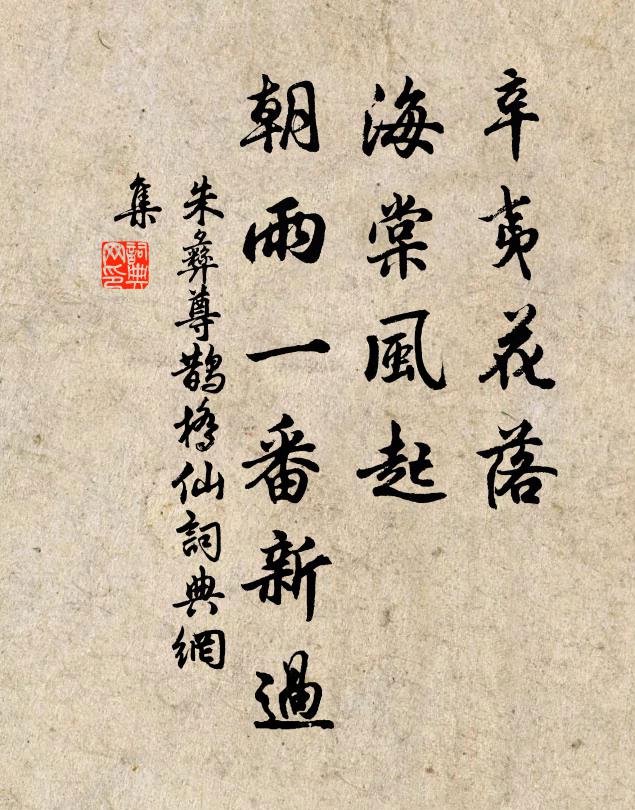 辛夷花落
海棠風起
朝雨一番新過
朱彝尊鵲橋仙詞典網
集
詞典
网印